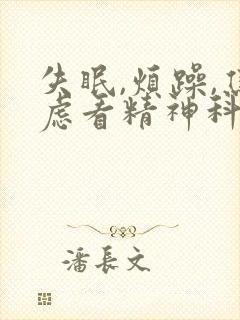 失眠,煩躁,焦
慮看精神科
潘長文